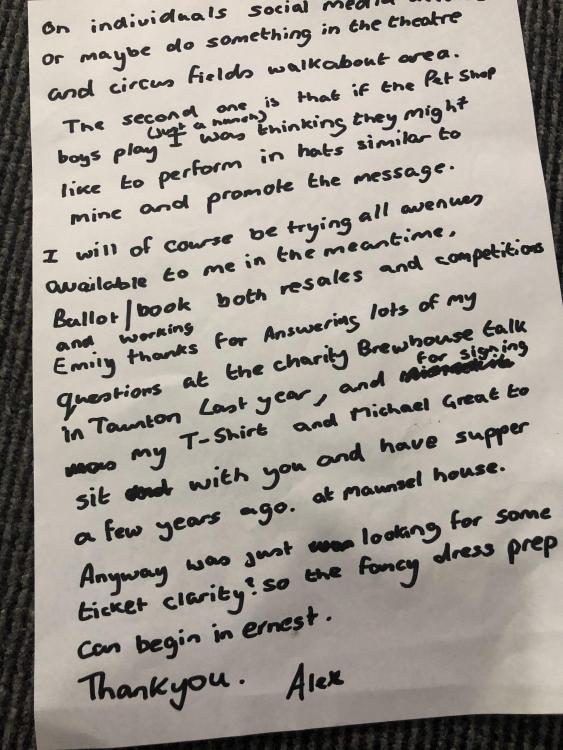 On individuals social media
or maybe do something in the theatre
and circus fields walkabout area.
The second one is that if the Pet Shop
(just a hunch)
boys play I was thinking they might
like to perform in hats similar to
mine and promote the message.
I will of course be trying all avenues
available to me in the meantime.
Ballot/book both resales and competitions
and working
Emily thanks for Answering lots of my
questions at the charity Brewhouse talk
in Taunton Last year, and for signing
my T-Shirt and Michael Great to
sit with you and have supper
a few years ago. at Maunsel house.
Anyway was just looking for some
ticket clarity! so the fancy dress prep
can begin in ernest.
Thankyou. Alex